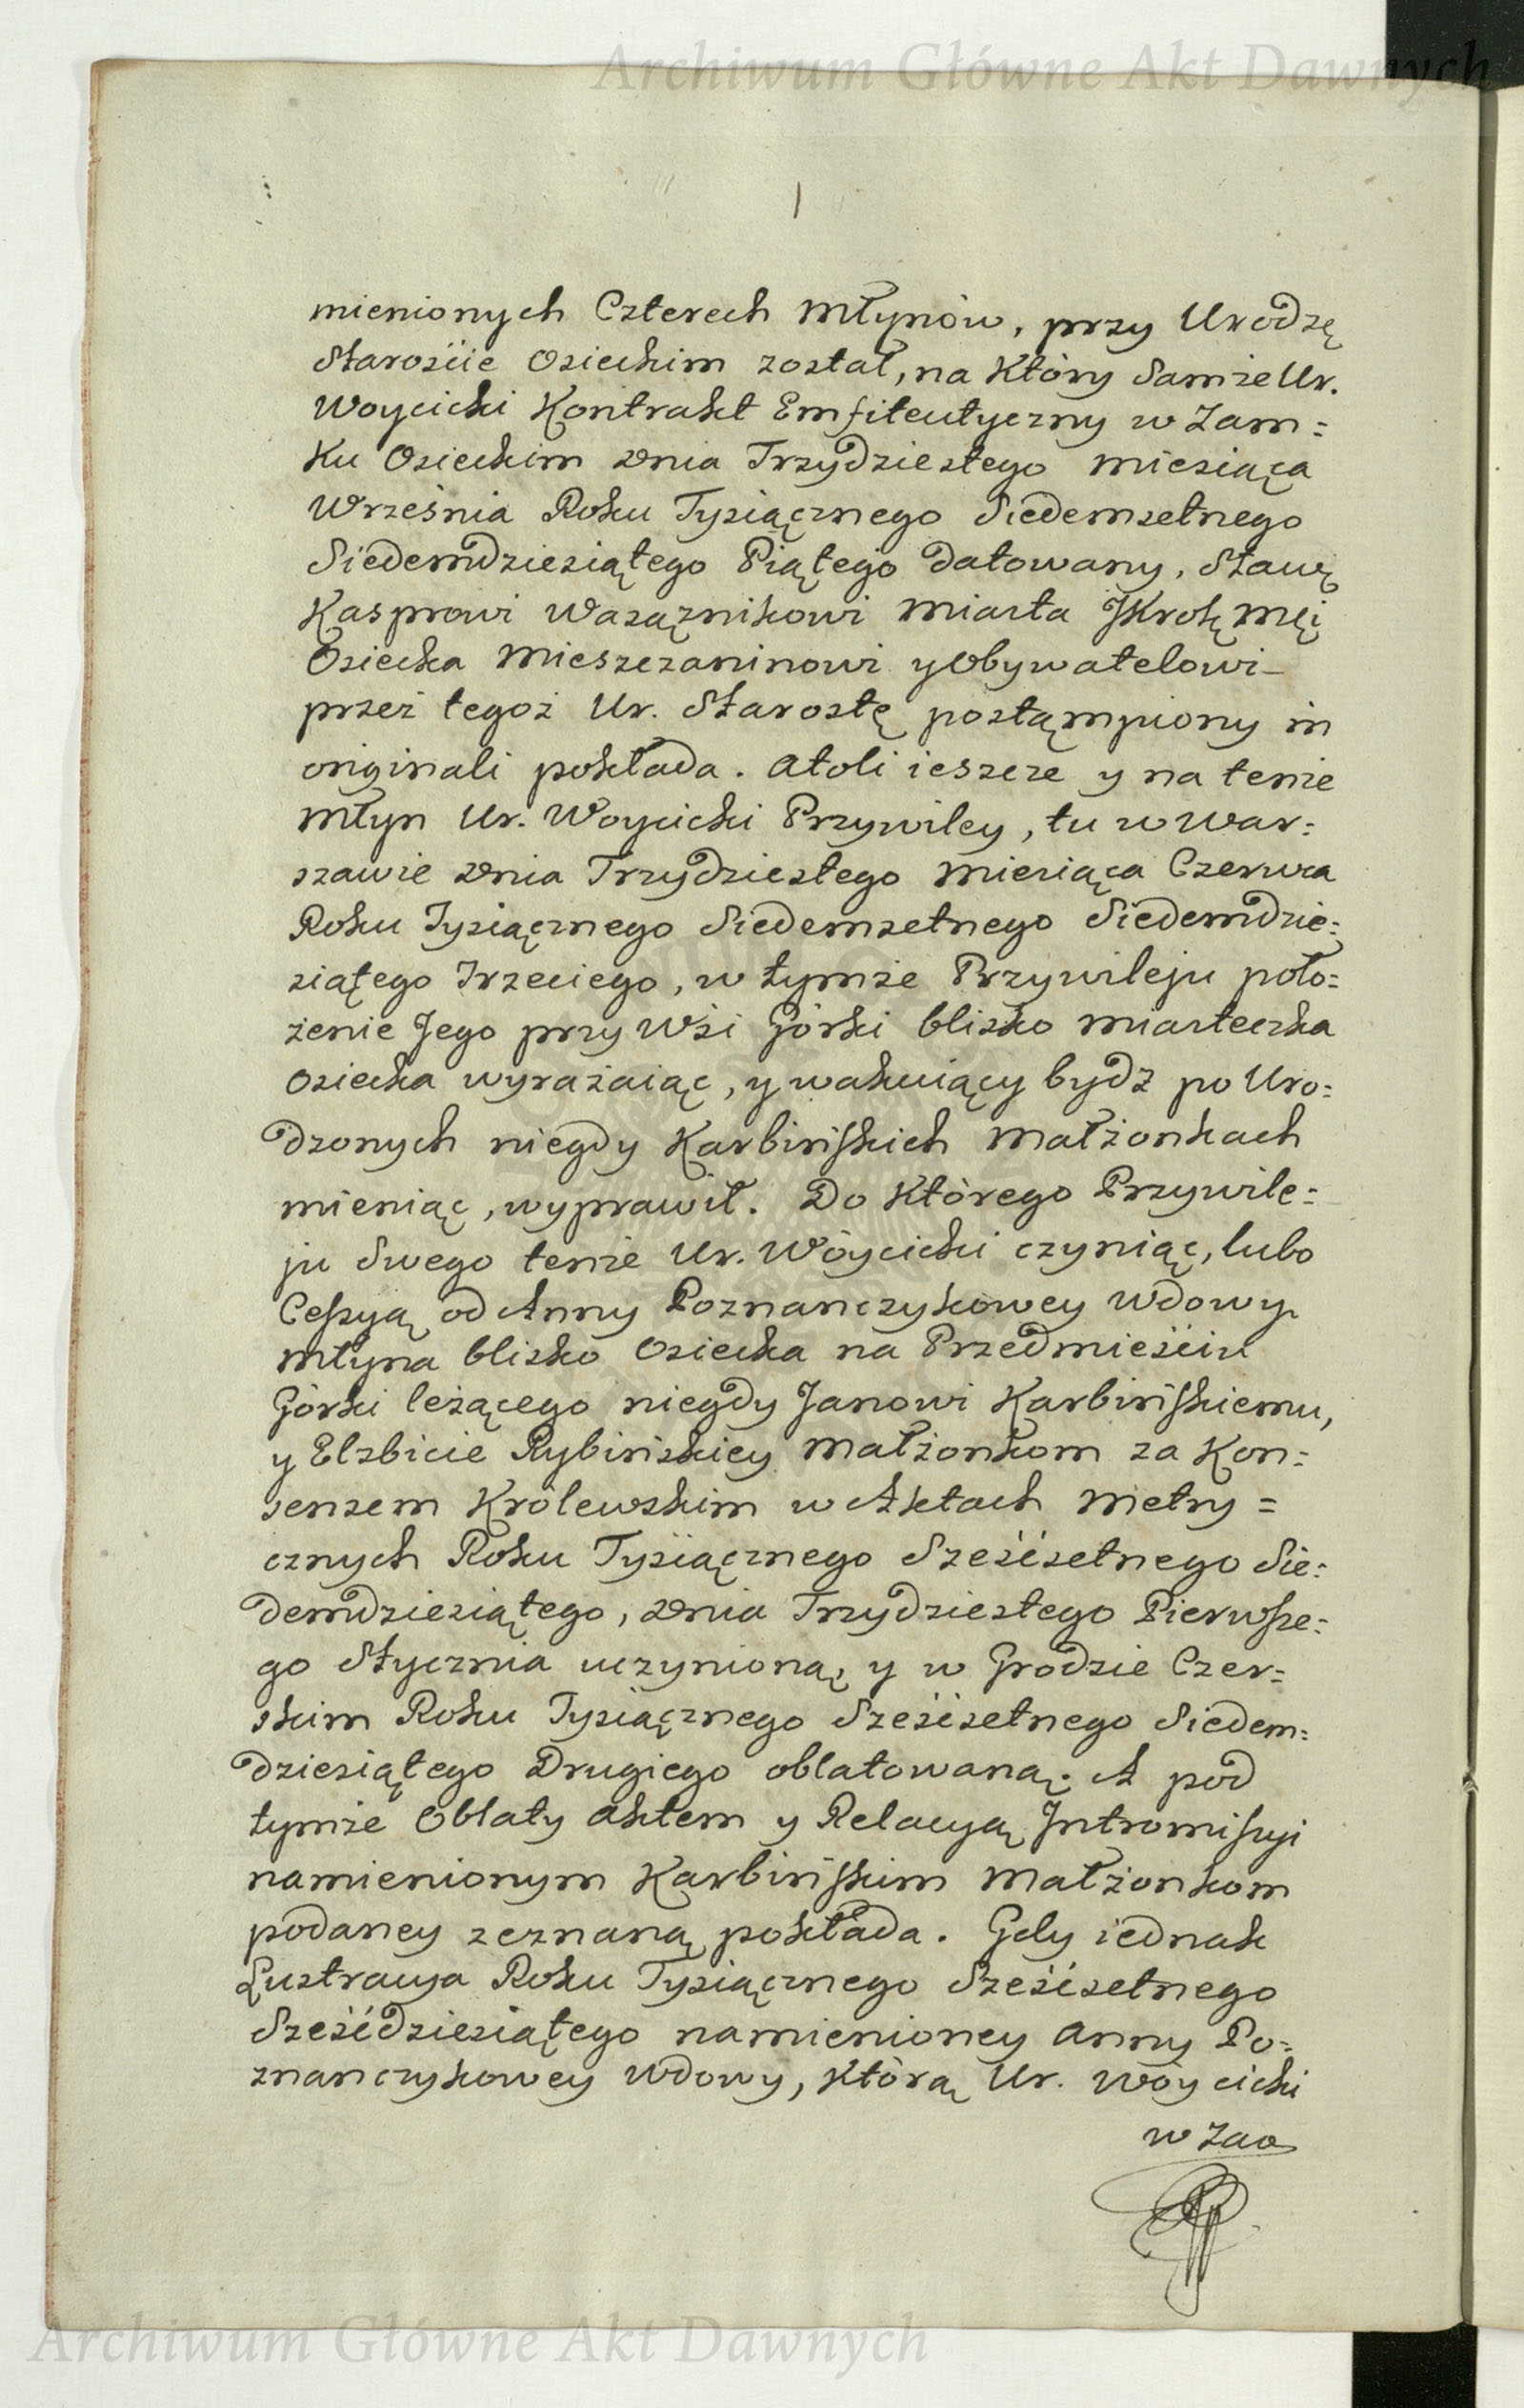 Archiwum Główne Akt Dawnych
mienionych Czterech Młynów, przy Urodzę
Staroscie Osieckim został, na Który Samże Ur.
Woycicki Kontrakt Emfiteutyczny w Zam=
Ku Osieckim dnia Trzydziestego Miesiąca
Września Roku Tysiącznego Siedemsetnego
Siedemdziesiątego Piątego datowany, Sławę
Kasprowi Wasążnikowi Miasta JKrolę Mći
Osiecka Mieszczaninowi y Obywatelowi
przez tegoż Ur. Starostę postąmpiony in
originali pokłada. Atoli ieszcze y na tenże
Młyn Ur. Woycicki Przywiley, tu w War=
szawie dnia Trzydziestego Miesiąca Czerwca
Roku Tysiącznego Siedemsetnego Siedemdzie=
siątego Trzeciego, w tymże Przywileju poło=
żenie Jego przy Wsi Górki blisko Miasteczka
Osiecka wyrażaiąc, y wakuiący bydź po Uro=
dzonych niegdy Karbińskich Małżonkach
mieniąc, wyprawił. Do Którego Przywile=
ju Swego tenże Ur. Wóycicki czyniąc, lubo
Cessyą od Anny Poznanczykowey Wdowy
Młyna blisko Osiecka na Przedmieściu
Górki leżącego niegdy Janowi Karbińskiemu,
y Elzbicie Rybińskiey Małżonkom za Kon=
sensem Królewskim w Aktach Metry=
cznych Roku Tysiącznego Sześćsetnego Sie=
demdziesiątego, dnia Trzydziestego Pierwsze=
go Stycznia uczynioną, y w Grodzie Czer=
skim Roku Tysiącznego Sześćsetnego Siedem=
dziesiątego Drugiego oblatowaną. A pod
tymże Oblaty Aktem y Relacyą Intromissyi
namienionym Karbińskim Małżonkom
podaney zeznaną pokłada. Gdy iednak
Lustracya Roku Tysiącznego Sześćsetnego
Sześćdziesiątego namienioney Anny Po=
znanczykowey Wdowy, Którą Ur. Wóycicki
w Zao
Archiwum Główne Akt Dawnych